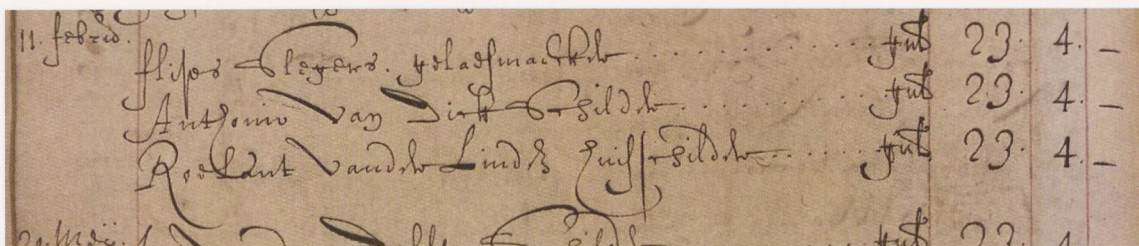 11. febrd. flips Slegers. gelaesmaecker ........ gul 23. 4. –
Anthonio Van Dick Schilder ........ gul 23. 4. –
Roelant Vander Linden huijsschilder ..... gul 23. 4. –
Meij.